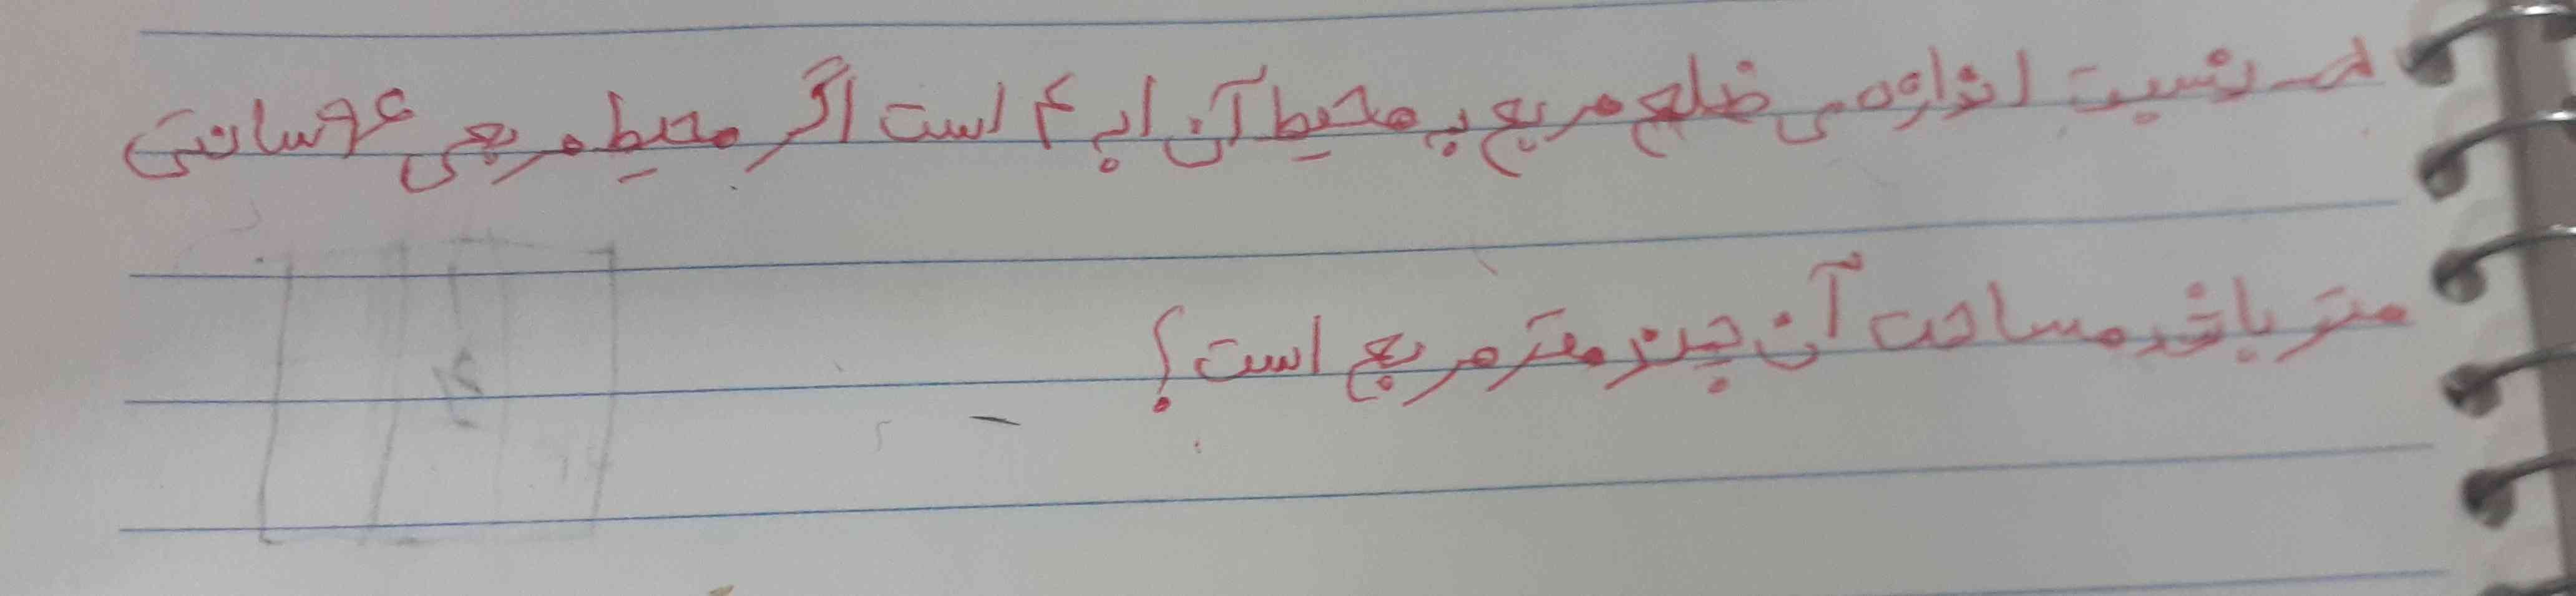 نسبت اندازه‌ی ضلع مربع به محیط آن ۱ به ۴ است اگر محیط مربعی ۶۴ سانتی
متر باشد مساحت آن چند متر مربع است؟